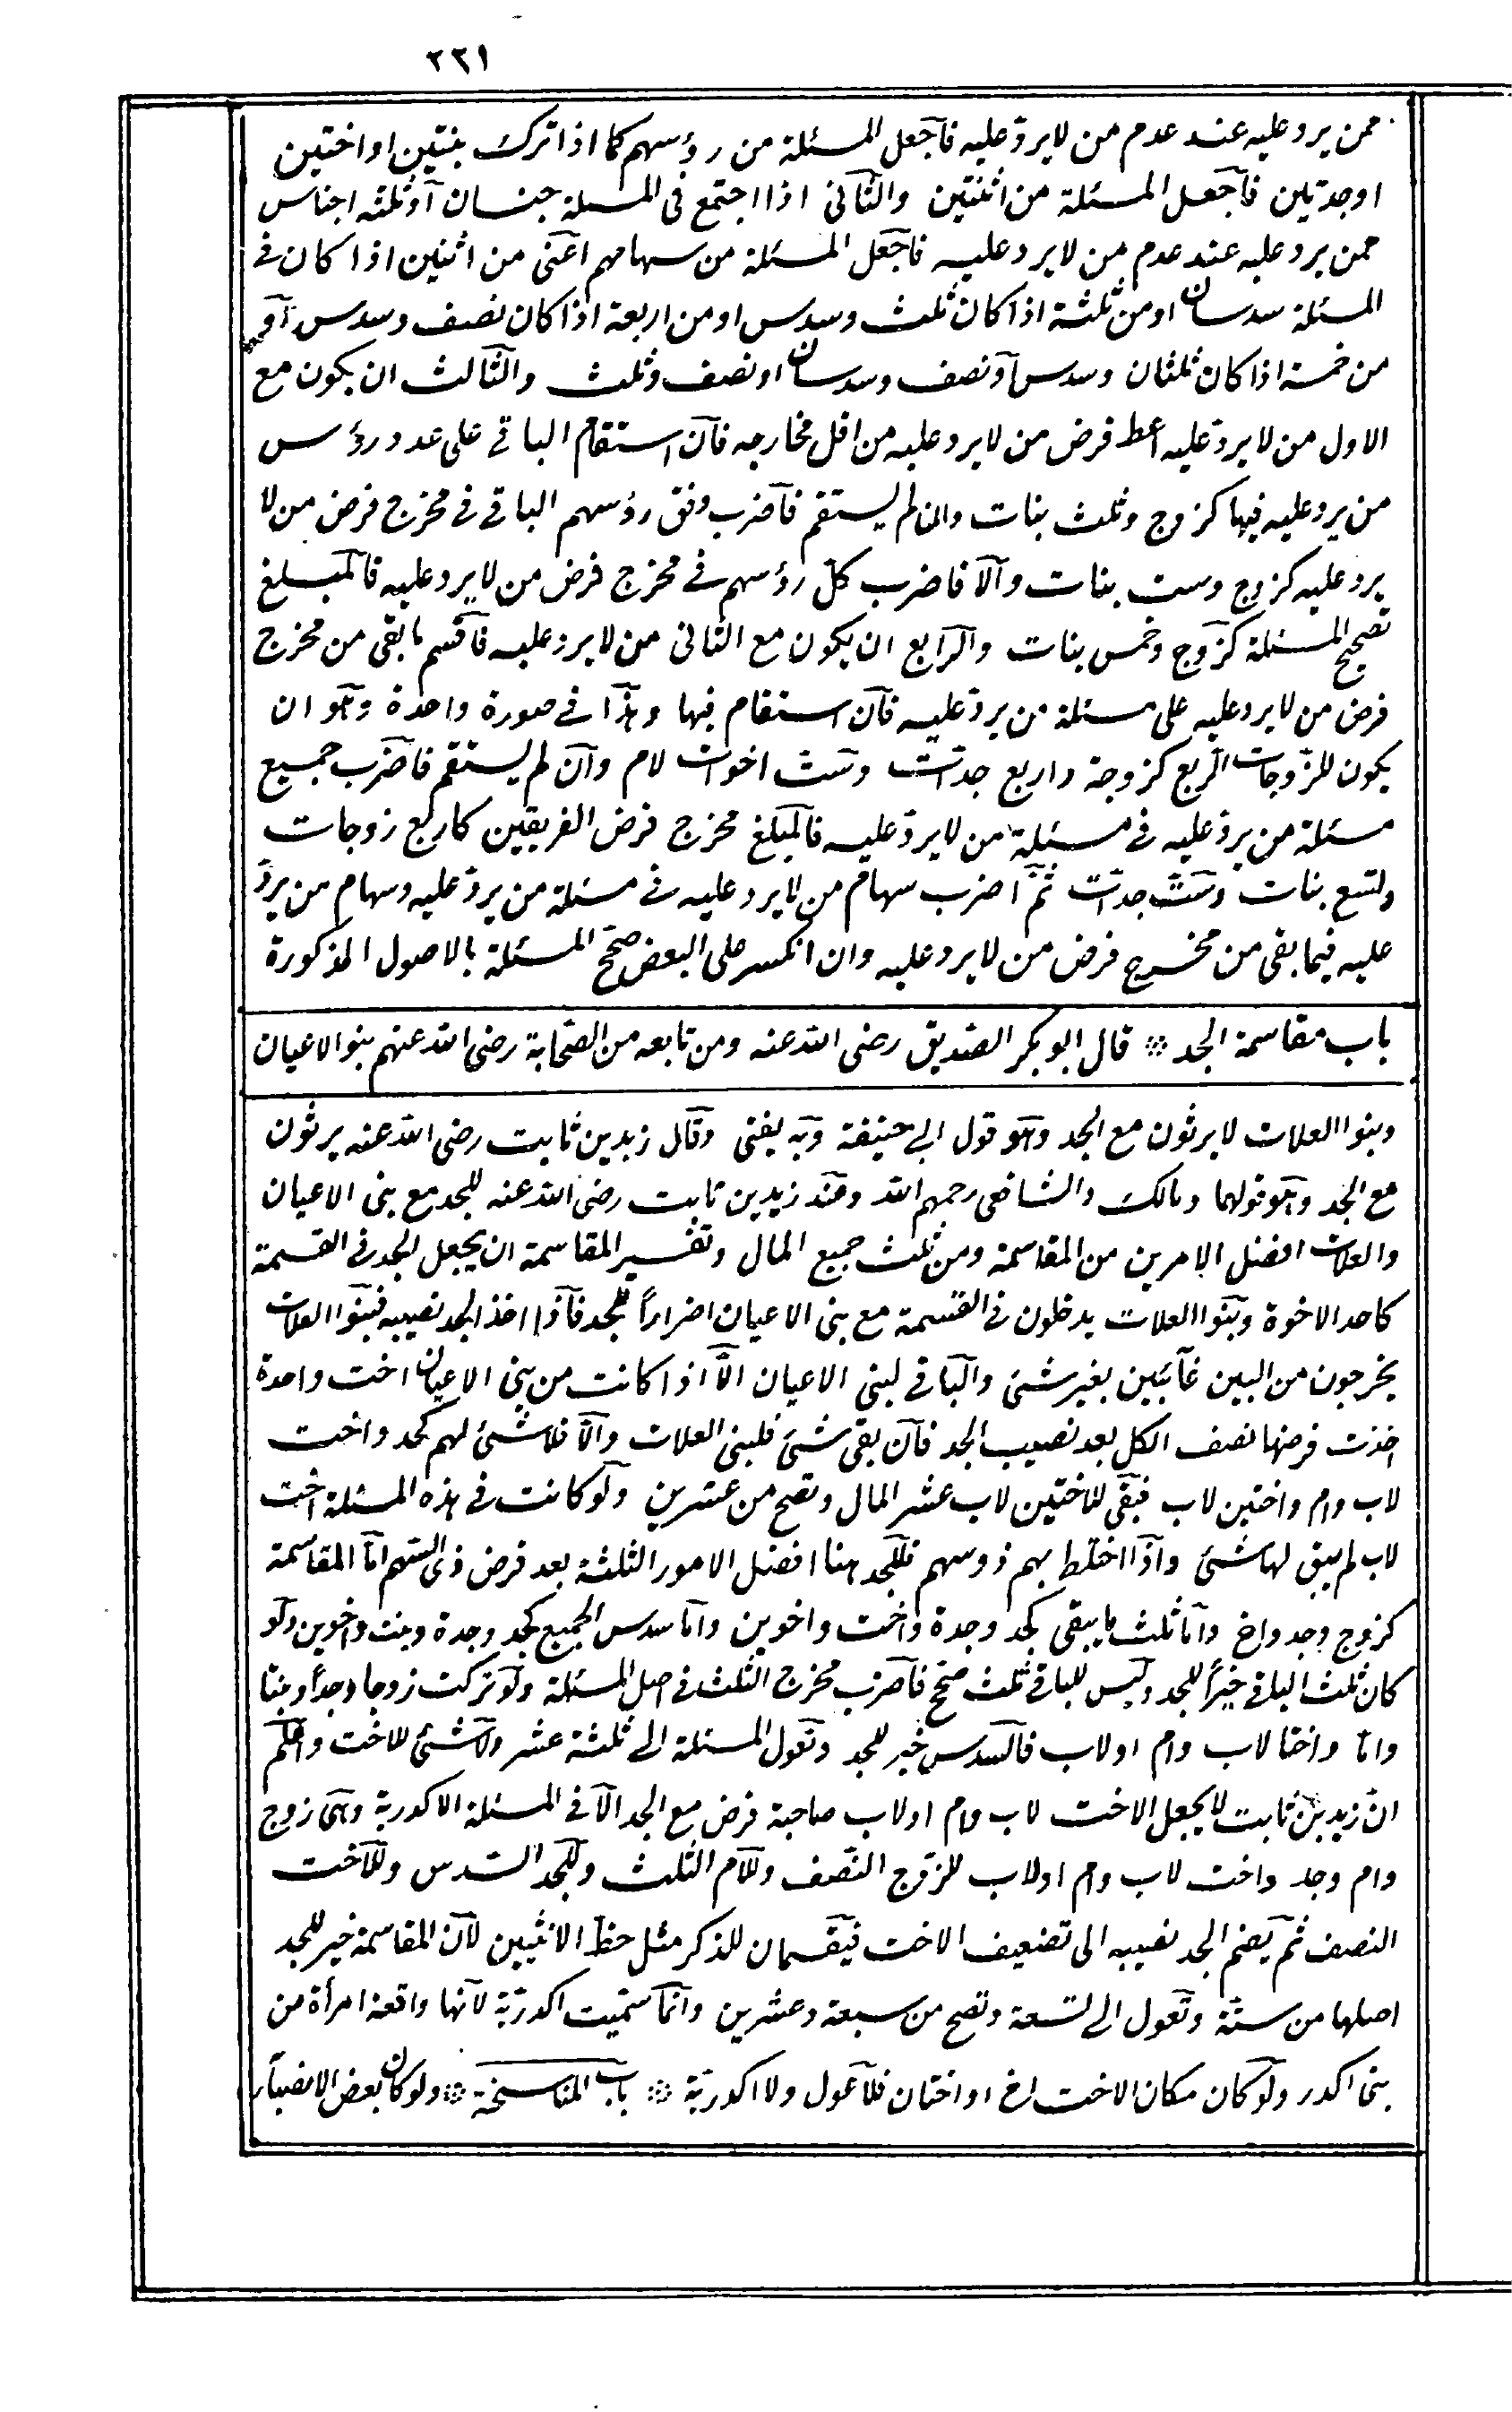 ٢٢١
ممن يرد عليه عند عدم من لا يردّ عليه فاجعل المسئلة من رؤسهم كما اذا ترك بنتين او اختين
او جدتين فاجعل المسئلة من اثنتين والثانى اذا اجتمع فى المسئلة جنسان او ثلثه اجناس
ممن يرد عليه عند عدم من لا يرد عليه فاجعل المسئلة من سهامهم اعنى من اثنين اذا كان فى
المسئلة سدسان او من ثلثة اذا كان ثلث وسدس او من اربعة اذا كان نصف وسدس او
من خمسة اذا كان ثلثان وسدس او نصف وسدسان او نصف وثلث والثالث ان يكون مع
الاول من لا يردّ عليه اعط فرض من لا يرد عليه من اقل مخارجه فان استقام الباقى على عدد رؤس
من يرد عليه فبها كزوج وثلث بنات وان لم يستقم فاضرب وفق رؤسهم الباقى فى مخرج فرض من لا
يرد عليه كزوج وست بنات والا فاضرب كلّ رؤسهم فى مخرج فرض من لا يرد عليه فالمبلغ
تصحيح المسئلة كزوج وخمس بنات والرابع ان يكون مع الثانى من لا يرد عليه فاقسم ما بقى من مخرج
فرض من لا يرد عليه على مسئلة من يردّ عليه فان استقام فبها وهذا فى صورة واحدة وهو ان
يكون للزّوجات الربع كزوجة واربع جدات وست اخوات لام وان لم يستقم فاضرب جميع
مسئلة من يردّ عليه فى مسئلة من لا يردّ عليه فالمبلغ مخرج فرض الفريقين كاربع زوجات
وتسع بنات وست جدات ثمّ اضرب سهام من لا يرد عليه فى مسئلة من يردّ عليه وسهام من يردّ
عليه فيما بقى من مخرج فرض من لا يرد عليه وان انكسر على البعض صحّح المسئلة بالاصول المذكورة
باب مقاسمة الجد ۞ قال ابو بكر الصّديق رضى الله عنه ومن تابعه من الصّحابة رضى الله عنهم بنو الاعيان
وبنوا العلات لا يرثون مع الجد وهو قول ابى حنيفة وبه يفتى وقال زيد بن ثابت رضى الله عنه يرثون
مع الجد وهو قولهما ومالك والشافعى رحمهم الله وعند زيد بن ثابت رضى الله عنه للجد مع بنى الاعيان
والعلات افضل الامرين من المقاسمة ومن ثلث جميع المال وتفسير المقاسمة ان يجعل الجد فى القسمة
كاحد الاخوة وبنوا العلات يدخلون فى القسمة مع بنى الاعيان اضراراً للجد فاذا اخذ الجد نصيبه فبنوا العلات
يخرجون من البين خائبين بغير شئ والباقى لبنى الاعيان الّا اذا كانت من بنى الاعيان اخت واحدة
اخذت فرضها نصف الكل بعد نصيب الجد فان بقى شئ فلبنى العلات والّا فلا شئ لهم كجد واخت
لاب وام واختين لاب فبقى للاختين لاب عشر المال وتصح من عشرين ولو كانت فى هذه المسئلة اخت
لاب لم يبق لها شئ واذا اختلط بهم ذو سهم فللجد هنا افضل الامور الثلثة بعد فرض ذى السّهم امّا المقاسمة
كزوج وجد واخ وامّا ثلث ما يبقى كجد وجدة واخت واخوين وامّا سدس الجميع كجد وجدة وبنت واخوين ولو
كان ثلث الباقى خيراً للجد وليس للباقى ثلث صحّح فاضرب مخرج الثلث فى اصل المسئلة ولو تركت زوجا وجداً وبنتا
وامّا واختا لاب وام او لاب فالسدس خير للجد وتعول المسئلة الى ثلثة عشر ولا شئ للاخت واعلم
انّ زيد بن ثابت لا يجعل الاخت لاب وام او لاب صاحبة فرض مع الجد الّا فى المسئلة الاكدرية وهى زوج
وام وجد واخت لاب وام او لاب للزّوج النّصف وللام الثّلث وللجد السّدس وللاخت
النصف ثم يضم الجد نصيبه الى تضعيف الاخت فيقسمان للذكر مثل حظ الانثيين لان المقاسمة خير للجد
اصلها من ستة وتعول الى تسعة وتصح من سبعة وعشرين وانّما سمّيت اكدريّة لانها واقعة امرأة من
بنى اكدر ولو كان مكان الاخت اخ او اختان فلا عول ولا اكدريّة ۞ باب المناسخة ۞ ولو كان بعض الانصباء